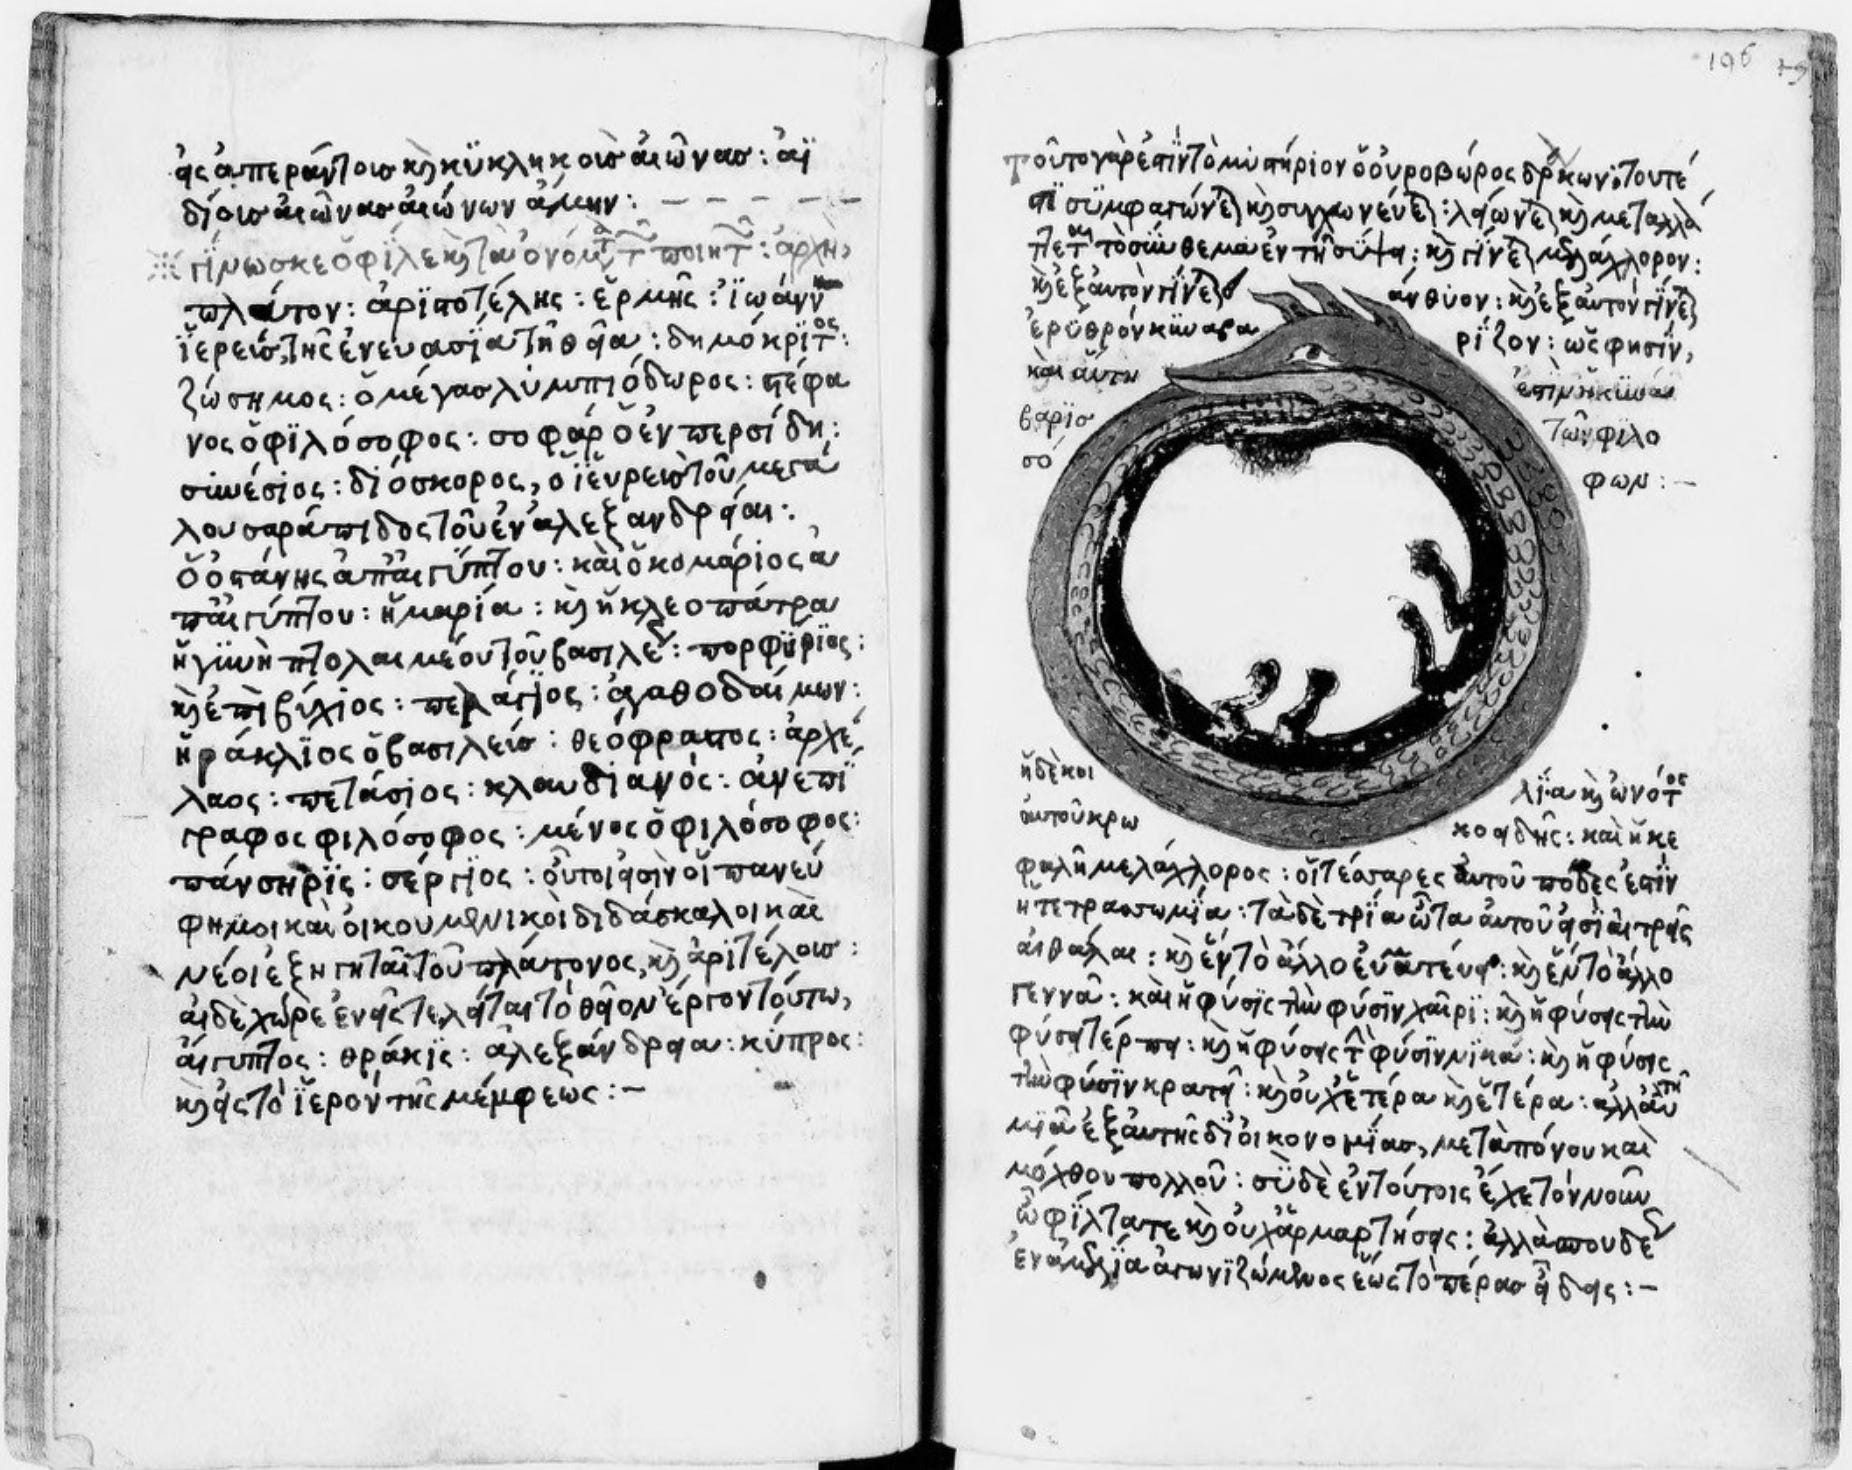 εἰς ἀπεράντοις καὶ κϋκληκοῖσ αἰῶνασ: ἀϊ
δίοισ αἰῶνασ αἰώνων ἀμήν:
γίνωσκε ὁ φίλε καὶ τὰ ὀνόμ
πλάτον: ἀρϊστοτέλης: ἑρμῆς: ϊωάνν
ϊερεὺσ τῆς ἐν εὐασίᾳ τῆ θεία: δημόκριτος:
ζώσημος: ὁ μέγασ λύμπιόδωρος: στέφα
νος ὁ φϊλόσοφος: σοφάρ ὁ ἐν περσίδη:
συνέσιος: διόσκορος, ὁ ϊευρεὺσ τοῦ μεγά
λου σαράπιδος τοῦ ἐν ἀλεξανδρείαι:
ὁ ὀστάνης ἀπ αἰγύπτου: καὶ ὁ κομάριος ἀ
π αἰγύπτου: ἡ μαρία: καὶ ἡ κλεοπάτρα
ἡ γϋνὴ πτολαιμέου τοῦ βασιλε: πορφύριος:
καὶ ἐπὶβίχιος: πελάγιος: ἀγαθοδαίμων:
ἡράκλϊος ὁ βασιλεύσ: θεόφραστος: ἀρχέ
λαος: πετάσιος: κλαυδιανός: ἀνεπϊ
γραφος φιλόσοφος: μένος ὁ φιλόσοφος:
πάνσηρϊς: σέργιος: οὗτοι εἰσὶν οἱ πανεύ
φημοι καὶ οἰκουμενικοὶ διδάσκαλοι καὶ
νέοι ἐξηγηταῖ τοῦ πλάτονος, καὶ ἀριτέλοισ:
αἱ δὲ χώρε ἐν αἷς τελεῖται τὸ θεῖον ἔργον τούτω,
αἴγυπτος: θράκϊς: ἀλεξάνδρεια: κύπρος:
καὶ εἰς τὸ ϊερόν τῆς μέμφεως:–
196
τοῦτο γάρ ἐστὶν τὸ μυστήριον ὁ οὐροβώρος δράκων: τουτέ
στϊ συμφαγώνετ καὶ συγχωνεύετ: λειώνετ καὶ μεταλλά
τὸ σύνθεμα ἐν τῆ σύψει: καὶ γίνετ μελάγχλορον:
καὶ ἐξ αὐτὸν γίνετ ἀνθύον: καὶ ἐξ αὐτὸν γίνετ
ἐρυθρόν κιννάβα ρίζον: ὥς φησϊν,
καὶ αὕτη ἐστὶν ἡ κιννά
βαρϊσ τῶν φιλο
σό φων:–
ἡ δὲ κοι λία καὶ ὁ νότος
αὐτοῦ κρω κοειδῆς: καὶ ἡ κε
φαλὴ μελάγχλορος: οἱ τέσσαρες αὐτοῦ πόδες ἐστὶν
ἡ τετρασωμία: τὰ δὲ τρία ὦτα αὐτοῦ εἰσϊ αἱ τρεῖς
αἰθάλαι: καὶ ἕν τὸ ἄλλο: καὶ ἕν τὸ ἄλλο
γεννᾶ: καὶ ἡ φύσϊς τὴν φύσϊν χαίρϊ: καὶ ἡ φύσεις τὴν
φύσϊ τέρπει: καὶ ἡ φύσεις τ φύσϊν νικᾶ: καὶ ἡ φύσις
τὴν φύσϊν κρατεῖ: καὶ οὐχ ἑτέρα καὶ ἑτέρα: ἀλλ αὐτὴ
μϊᾶ ἐξ αὐτῆς δϊ οἰκονομίασ, μετὰ πόνου καὶ
μόχθου πολλοῦ: σὺ δὲ ἐν τούτοις ἔχε τὸν νοῦν
ὦ φίλτατε καὶ οὐχ ἁρμαρτήσεις: ἀλλὰ σπουδε
ἐν ἀμελεία ἀγωνϊζώμενος ἕως τὸ πέρασ εἶδεις:–